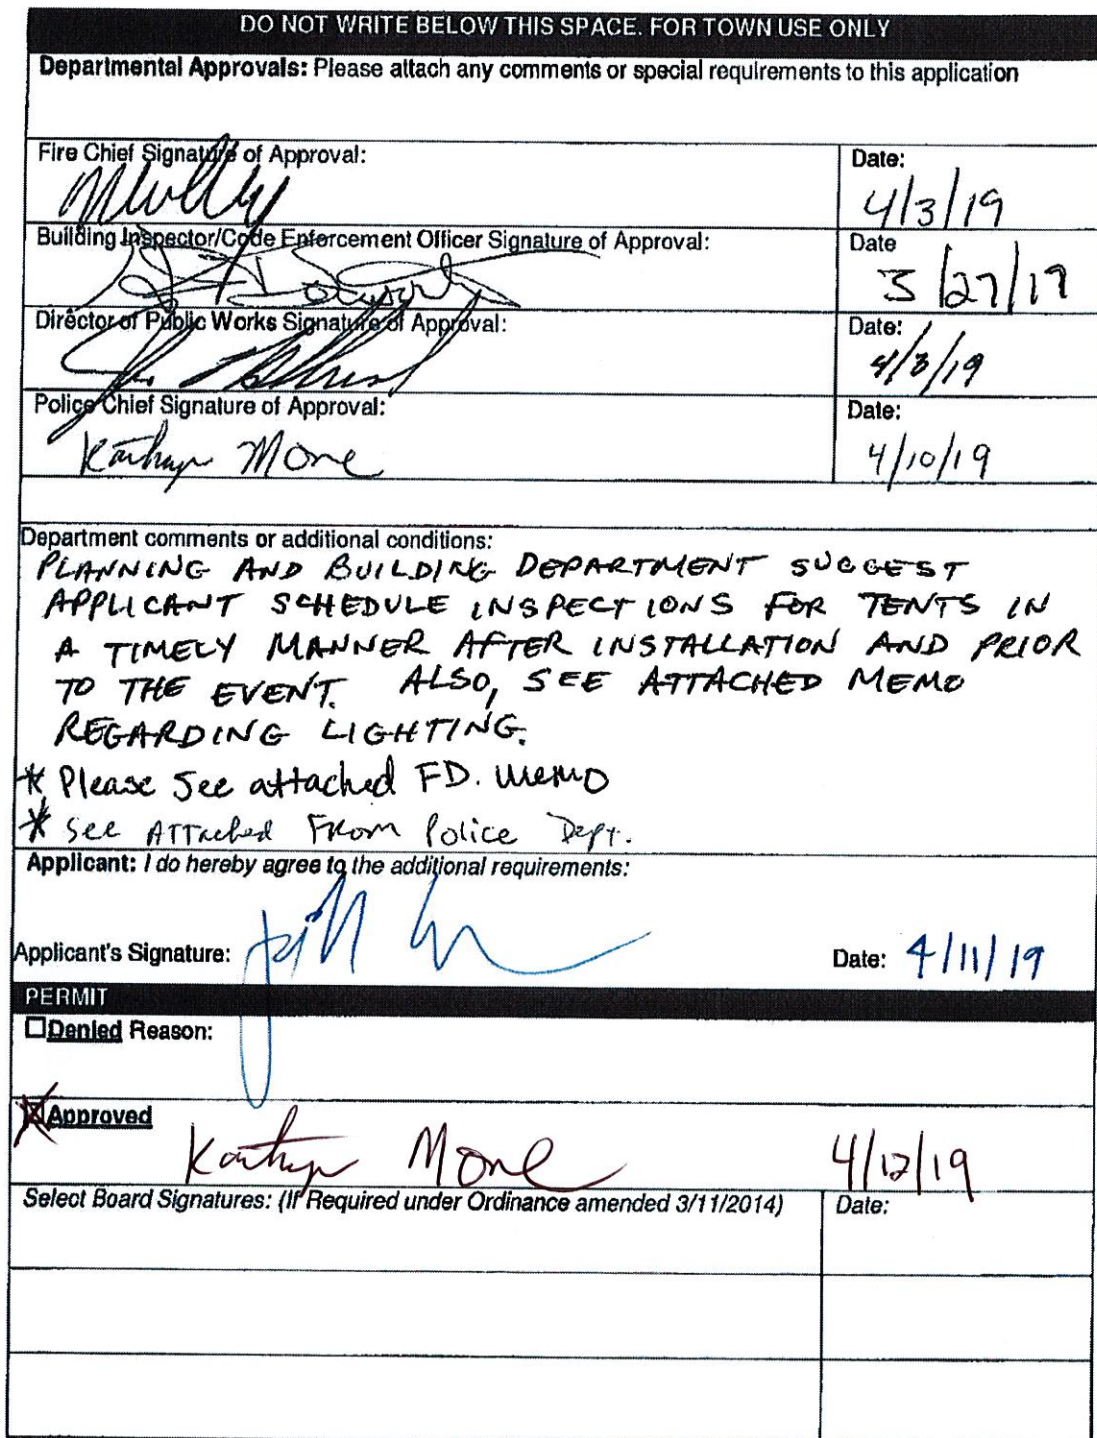 DO NOT WRITE BELOW THIS SPACE. FOR TOWN USE ONLY
Departmental Approvals: Please attach any comments or special requirements to this application
Fire Chief Signature of Approval:
Date:
4/3/19
Building Inspector/Code Enforcement Officer Signature of Approval:
Date
3/27/19
Director of Public Works Signature of Approval:
Date:
4/3/19
Police Chief Signature of Approval:
Kathryn Mone
Date:
4/10/19
Department comments or additional conditions:
PLANNING AND BUILDING DEPARTMENT SUGGEST
APPLICANT SCHEDULE INSPECTIONS FOR TENTS IN
A TIMELY MANNER AFTER INSTALLATION AND PRIOR
TO THE EVENT. ALSO, SEE ATTACHED MEMO
REGARDING LIGHTING.
* Please See attached FD. memo
* See ATTached From Police Dept.
Applicant: I do hereby agree to the additional requirements:
Applicant's Signature:
Date: 4/11/19
PERMIT
Denied Reason:
Approved
Kathryn Mone 4/12/19
Select Board Signatures: (If Required under Ordinance amended 3/11/2014)
Date: